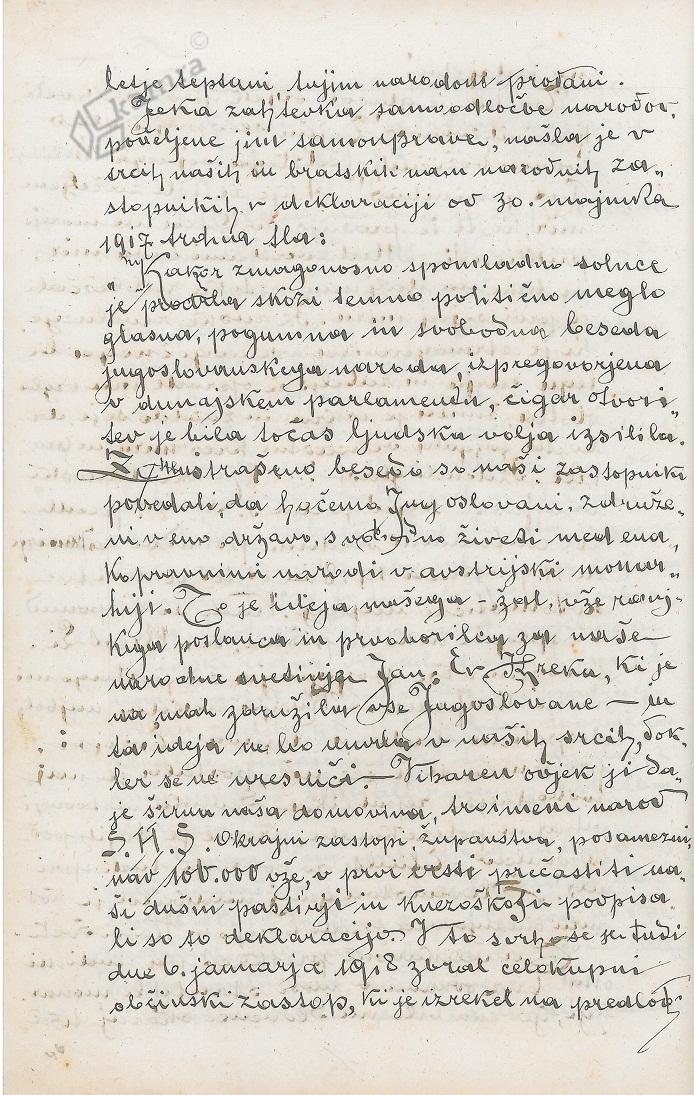 kamra ©
letje teptani, tujim narodom prodani.
Jeka zahtevka samoodločbe narodov,
podeljene jim samouprave, našla je v
srcih naših in bratskih nam narodnih za„
stopnikih v deklaraciji od 30. majnika
1917 trdna tla:
„Kakor zmagonosno spomladno solnce
je prodrla skozi temno politično meglo
glasna, pogumna in svobodna beseda
jugoslovanskega naroda, izpregovorjena
v dunajskem parlamentu, čigar otvori„
tev je bila točas ljudska volja izsilila.
Z neustrašeno besedo so naši zastopniki
povedali, da hočemo Jugoslovani, združe„
ni v eno državo, svobodno živeti med ena„
kopravnimi narodi v avstrijski monar„
hiji. To je ideja našega – žal, vže ranj„
kega poslanca in prvoborilca za naše
narodne svetinje Jan. Ev. Kreka, ki je
na mah združila vse Jugoslovane – in
ta ideja ne bo umrla v naših srcih, dok„
ler se ne uresniči. – Viharen odjek ji da„
je širna naša domovina, troimeni narod
S. H. S. Okrajni zastopi, županstva, posamezni„
kov 100.000 vže, v prvi vrsti prečastiti na„
ši dušni pastirji in knezoškofi podpisa„
li so to deklaracijo. V to svrho se je tudi
dne 6. januarja 1918 zbral celokupni
občinski zastop, ki je izrekel na predlog